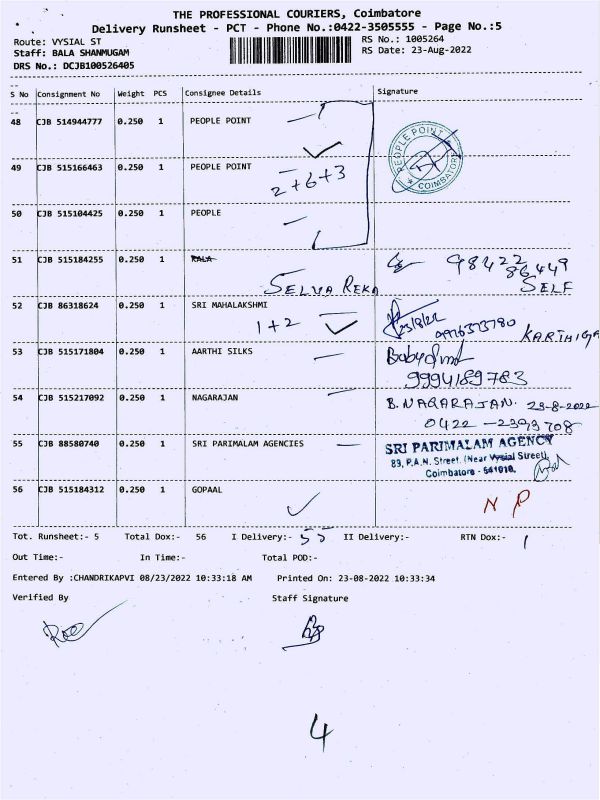 THE PROFESSIONAL COURIERS, Coimbatore
Delivery Runsheet - PCT - Phone No.:0422-3505555 - Page No.:5
Route: VYSIAL ST
RS No.: 1005264
Staff: BALA SHANMUGAM
RS Date: 23-Aug-2022
DRS No.: DCJB100526405
S No Consignment No Weight PCS Consignee Details Signature
48 CJB 514944777 0.250 1 PEOPLE POINT
PEOPLE POINT
COIMBATORE
49 CJB 515166463 0.250 1 PEOPLE POINT
2+6+3
50 CJB 515104425 0.250 1 PEOPLE
51 CJB 515184255 0.250 1 RALA
98422
86449
SELVA REKA
SELF
52 CJB 86318624 0.250 1 SRI MAHALAKSHMI
1+2
23/8/22
KARTHIGA
53 CJB 515171804 0.250 1 AARTHI SILKS
9994189783
54 CJB 515217092 0.250 1 NAGARAJAN
B. NAGARAJAN. 23-8-2022
0422 - 2393708
55 CJB 88580740 0.250 1 SRI PARIMALAM AGENCIES
SRI PARIMALAM AGENCY
83, P.A.N. Street, (Near Vysial Street),
Coimbatore - 641018.
56 CJB 515184312 0.250 1 GOPAAL
N P
Tot. Runsheet:- 5 Total Dox:- 56 I Delivery:- 55 II Delivery:- RTN Dox:- 1
Out Time:- In Time:- Total POD:-
Entered By :CHANDRIKAPVI 08/23/2022 10:33:18 AM Printed On: 23-08-2022 10:33:34
Verified By Staff Signature
4